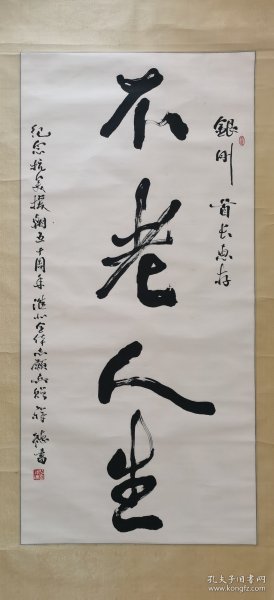 銀剛首长惠存
不老人生
纪念抗美援朝五十周年
孔夫子旧书网